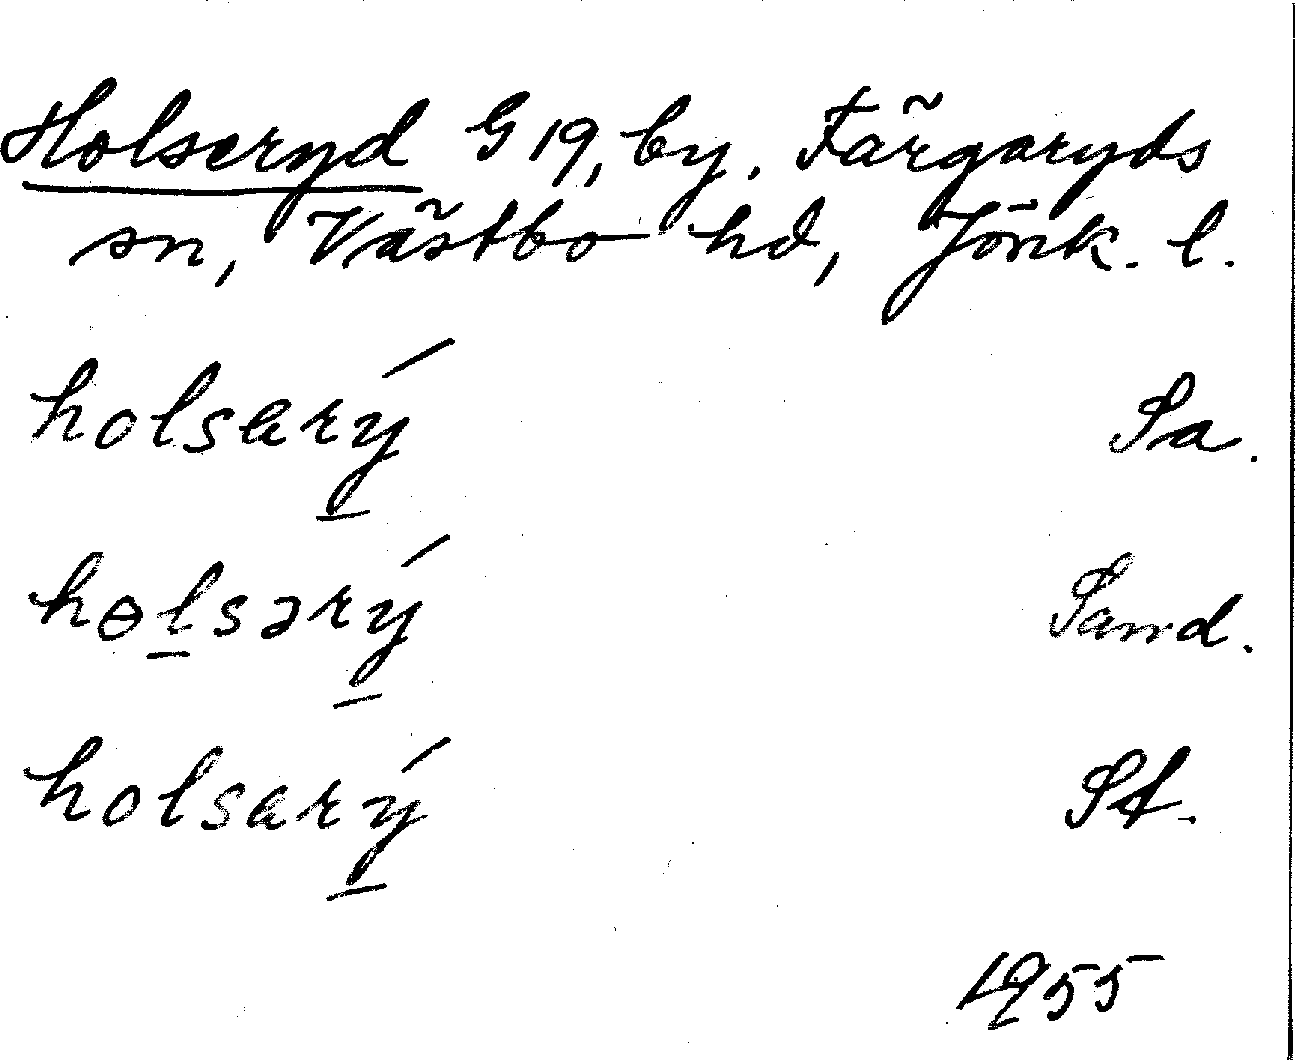 Holseryd G 19, by. Färgaryds
sn, Västbo hd, Jönk. l.
holsarý̱ Sa.
hɵḻsərý̱ Sand.
holsarý̱ St.
1955